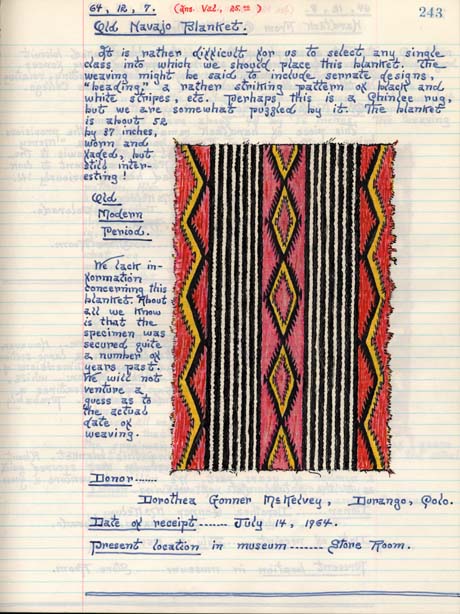 64, 12, 7. (Ins. Val., 25.00)
243
Old Navajo Blanket.
It is rather difficult for us to select any single
class into which we should place this blanket. The
weaving might be said to include serrate designs,
"beading," a rather striking pattern of black and
white stripes, etc. Perhaps this is a Chinlee rug,
but we are somewhat puzzled by it. The blanket
is about 52
by 37 inches,
worn and
faded, but
still inter-
esting!
Old
Modern
Period.
We lack in-
formation
concerning this
blanket. About
all we know
is that the
specimen was
secured quite
a number of
years past.
We will not
venture a
guess as to
the actual
date of
weaving.
Donor......
Dorothea Gonner McKelvey, Durango, Colo.
Date of receipt ------- July 14, 1964.
Present location in museum ------- Store Room.